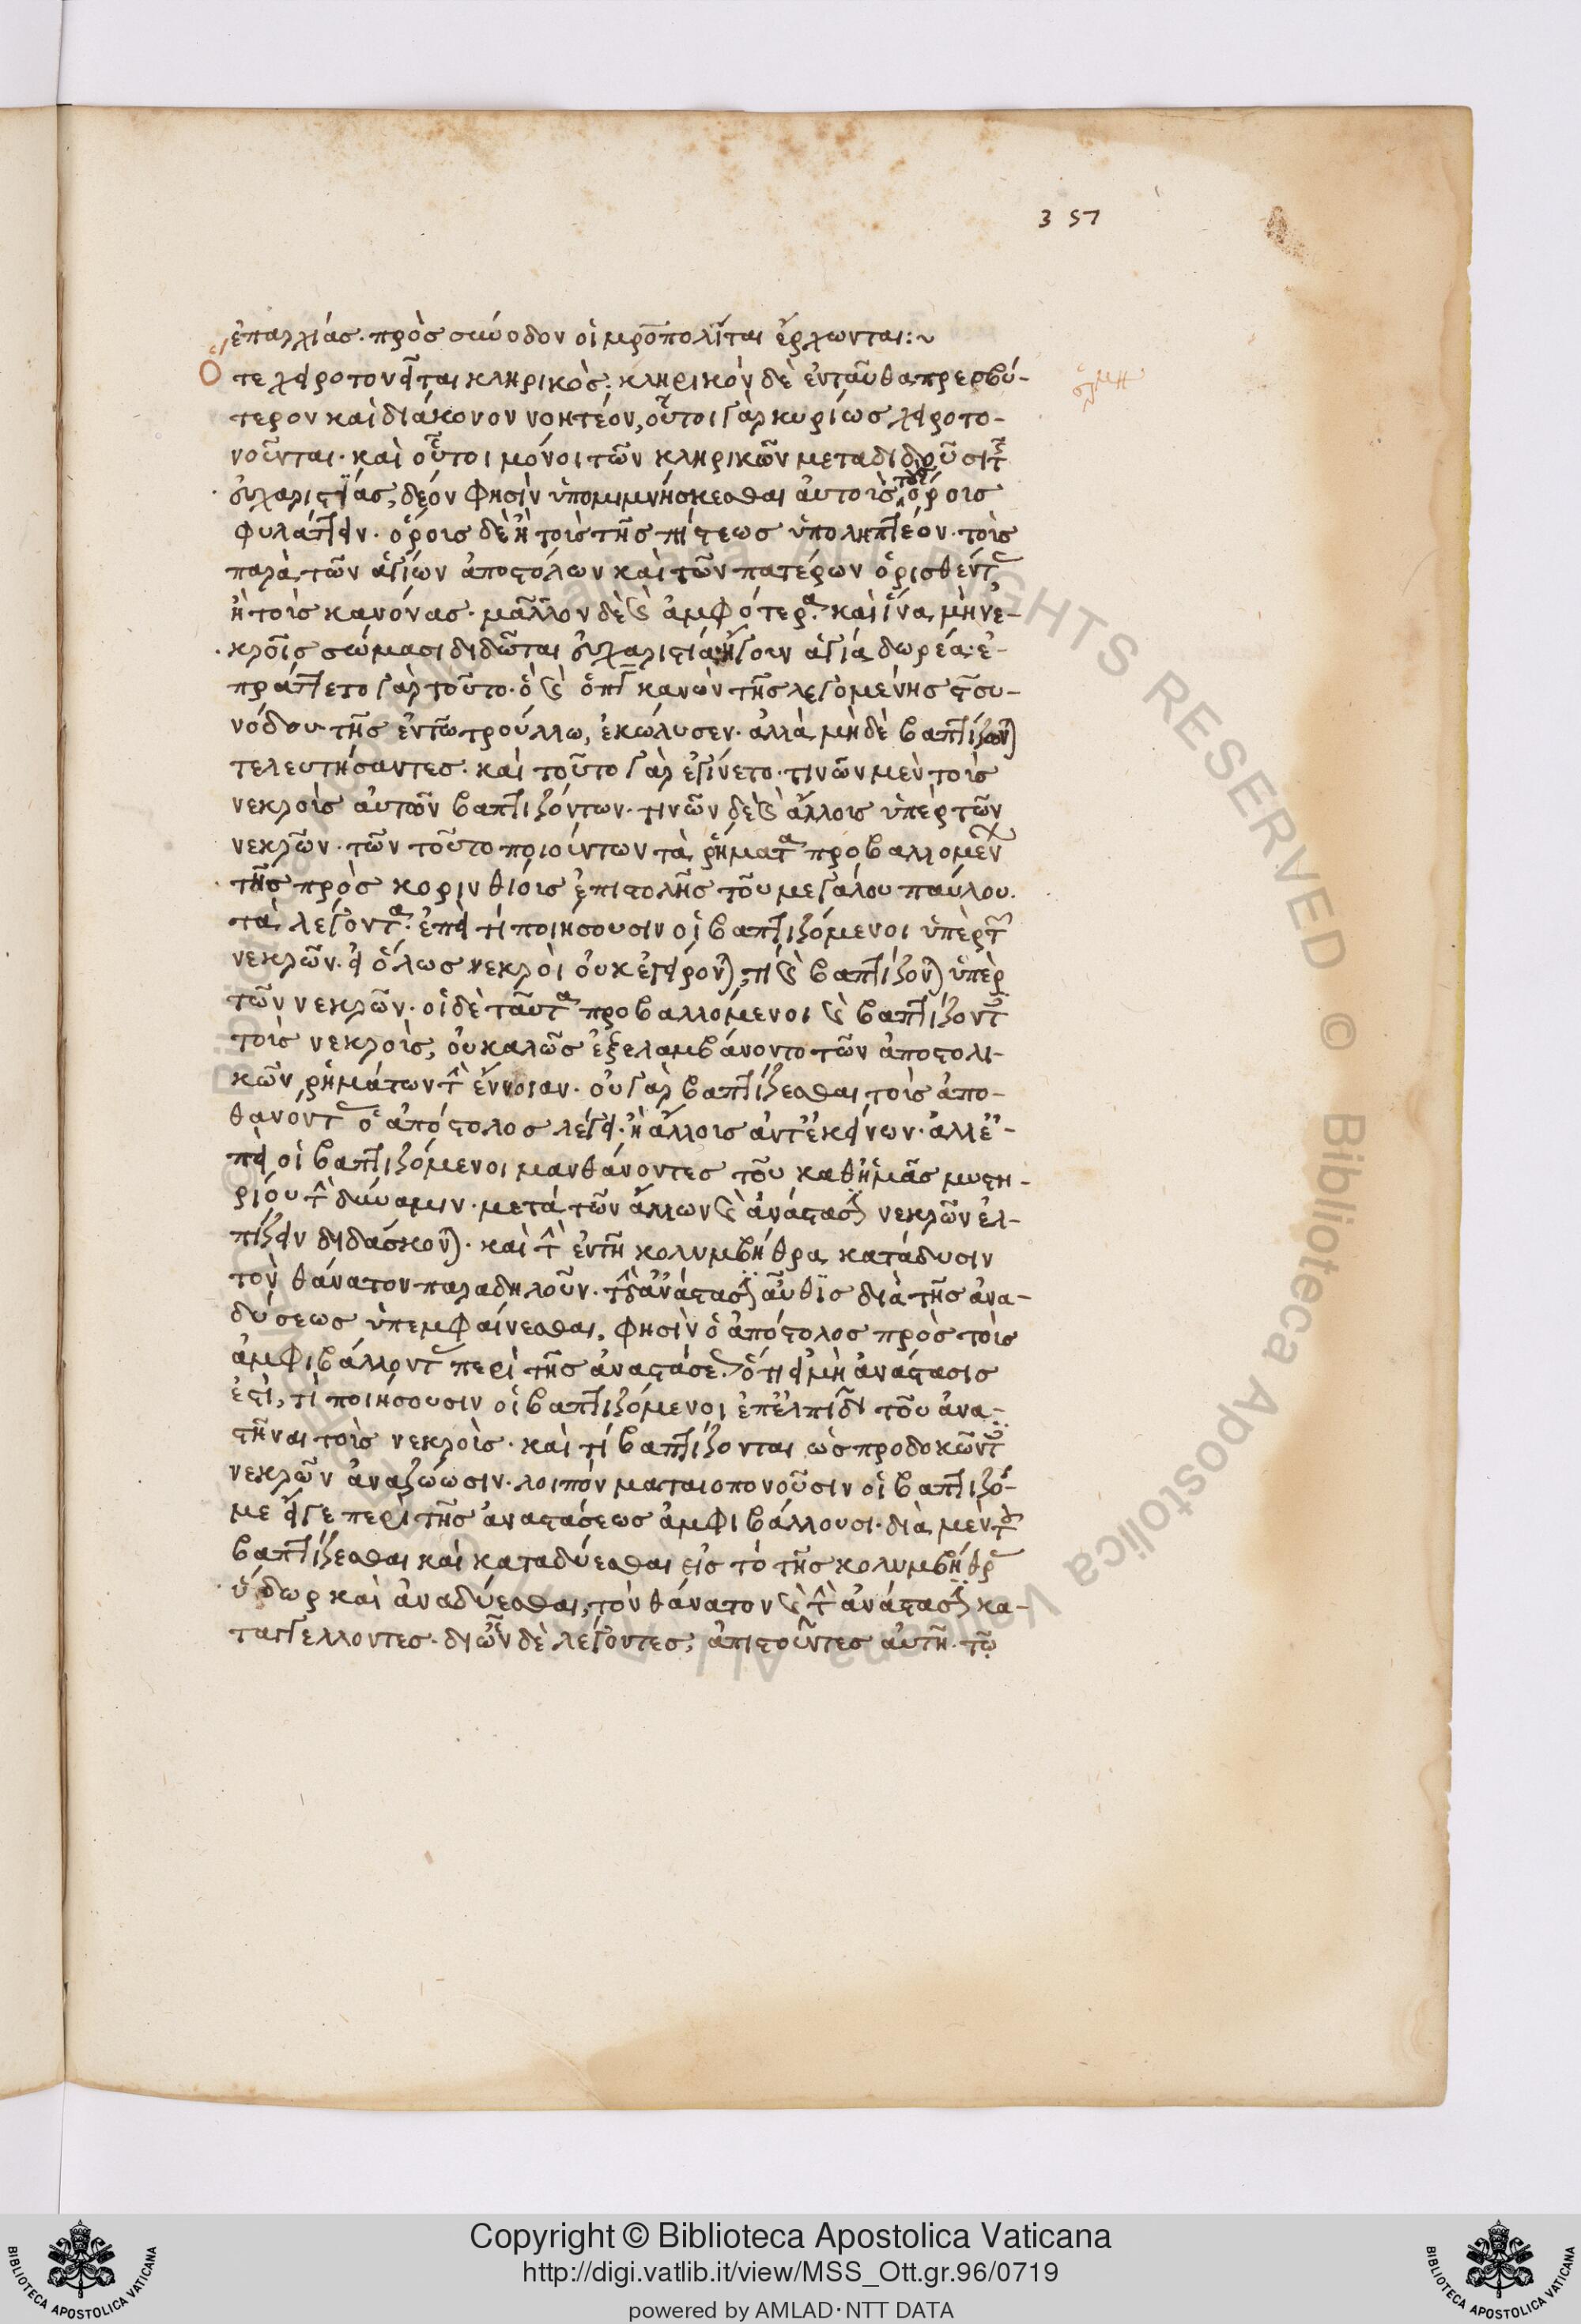 357
ἐπαρχίας· πρὸς σύνοδον οἱ μροπολῖται ἔρχωνται:~
Ὅτε χειροτονεῖται κληρικὸς· κληρικὸν δὲ ἐνταῦθα πρεσβύ-
τερον καὶ διάκονον νοητέον, οὗτοι γὰρ κυρίως χειροτο-
νοῦνται· καὶ οὗτοι μόνοι τῶν κληρικῶν μεταδιδοῦσι τῆς
εὐχαριστίας, δέον φησὶν ὑπομιμνήσκεσθαι αὐτοὺς τοὺς ὅρους
φυλάττειν· ὅρους δὲ ἢ τοὺς τῆς πίστεως ὑποληπτέον· τοὺς
παρὰ τῶν ἁγίων ἀποστόλων καὶ τῶν πατέρων ὁρισθέντας
ἢ τοὺς κανόνας· μᾶλλον δὲ καὶ ἀμφότερα· καὶ ἵνα μὴ νε-
κροῖς σώμασι διδῶται εὐχαριστία ἤγουν ἁγία δωρεά· ἐ-
πράττετο γὰρ τοῦτο· ὃ καὶ ὁ πγ κανὼν τῆς λεγομένης ς συ-
νόδου τῆς ἐν τῶ τρούλλω, ἐκώλυσεν· ἀλλὰ μὴ δὲ βαπτίζωνται
τελευτήσαντες· καὶ τοῦτο γὰρ ἐγίνετο· τινῶν μὲν τοὺς
νεκροὺς αὐτῶν βαπτιζόντων· τινῶν δὲ καὶ ἄλλους ὑπὲρ τῶν
νεκρῶν· τῶν τοῦτο ποιούντων τὰ ῥήματα προβαλλομένων
τῆς πρὸς κορινθίους ἐπιστολῆς τοῦ μεγάλου παύλου.
τὰ λέγοντα· ἐπεὶ τί ποιήσουσιν οἱ βαπτιζόμενοι ὑπὲρ τῶν
νεκρῶν· εἰ ὅλως νεκροὶ οὐκ ἐγείρονται, τί καὶ βαπτίζονται ὑπὲρ
τῶν νεκρῶν· οἱ δὲ ταῦτα προβαλλόμενοι καὶ βαπτίζοντες
τοὺς νεκροὺς, οὐ καλῶς ἐξελαμβάνοντο τῶν ἀποστολι-
κῶν ῥημάτων τὴν ἔννοιαν· οὐ γὰρ βαπτίζεσθαι τοὺς ἀπο-
θανόντας ὁ ἀπόστολος λέγει· ἢ ἄλλους ἀντ' ἐκείνων· ἀλλ' ἐ-
πεὶ οἱ βαπτιζόμενοι μανθάνοντες τοῦ καθ' ἡμᾶς μυστη-
ρίου τὴν δύναμιν· μετὰ τῶν ἄλλων καὶ ἀνάστασιν νεκρῶν ἐλ-
πίζειν διδάσκονται· καὶ τὴν ἐν τῆ κολυμβήθρα κατάδυσιν
τὸν θάνατον παραδηλοῦν· τὴν δ' ἀνάστασιν αὖθις διὰ τῆς ἀνα-
δύσεως ὑπεμφαίνεσθαι, φησὶν ὁ ἀπόστολος πρὸς τοὺς
ἀμφιβάλλοντας περὶ τῆς ἀναστάσεως· ὅτι εἰ μὴ ἀνάστασις
ἐστὶ, τί ποιήσουσιν οἱ βαπτιζόμενοι ἐπ' ἐλπίδι τοῦ ἀνα-
στῆναι τοὺς νεκροὺς· καὶ τί βαπτίζονται ὡς προδοκῶντες
νεκρῶν ἀναζώωσιν· λοιπὸν ματαιοπονοῦσιν οἱ βαπτιζό-
με εἴγε περὶ τῆς ἀναστάσεως ἀμφιβάλλουσι· διὰ μὲν τοῦ
βαπτίζεσθαι καὶ καταδύεσθαι εἰς τὸ τῆς κολυμβήθρας
ὕδωρ καὶ ἀναδύεσθαι, τὸν θάνατον καὶ τὴν ἀνάστασιν κα-
ταγγέλλοντες· δι' ὧν δὲ λέγοντες, ἀπιστοῦντες αὐτῆ· τῶ
Copyright © Biblioteca Apostolica Vaticana
http://digi.vatlib.it/view/MSS_Ott.gr.96/0719
powered by AMLAD·NTT DATA